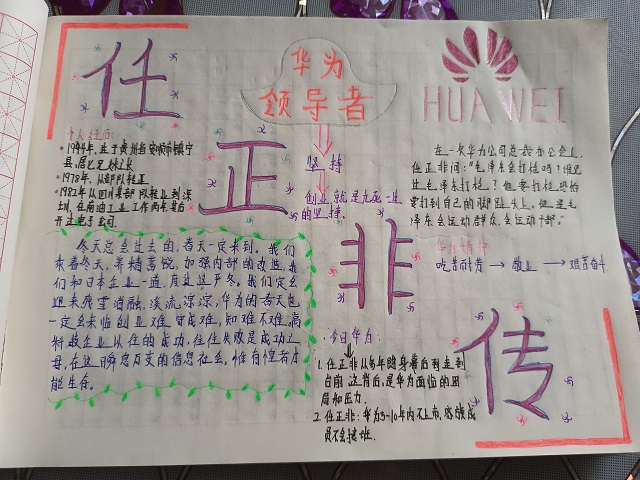 任
正
非
传
华为
领导者
HUAWEI
个人经历:
·1944年,生于贵州省安顺市镇宁
县,居七兄妹之长
·1978年,从部队转正
·1982年从四川某部队转业到深
圳,在南油工业工作两年来自
坚持
创业就是九死一生
的坚持。
在一次华为公司总裁办公会上,
任正非问:"毛泽东会打枪吗?谁见
过毛泽东打枪?
要打到自己的脚趾头上。但是毛
泽东会运动群众,会运动干部。"
华为精神
吃苦耐劳 → 敬业 → 艰苦奋斗
冬天总会过去的,春天一定来到。我们
乘着冬天,养精蓄锐,加强内部的改进,我
们和日本企业一道,度过这严冬,我们定会
迎来残雪消融,溪流淙淙,华为的春天也
一定会来临创业难,守成难,知难不难,高
科技企业以往的成功,往往失败是成功之
母,在这瞬息万变的信息社会,惟有惶者才
能生存。
·今日华为:
1.任正非从多年随身
自南,这背后,是华为面临的困
局和压力.
2.任正非:华为3-10年内不上市,家族成
员不会接班.